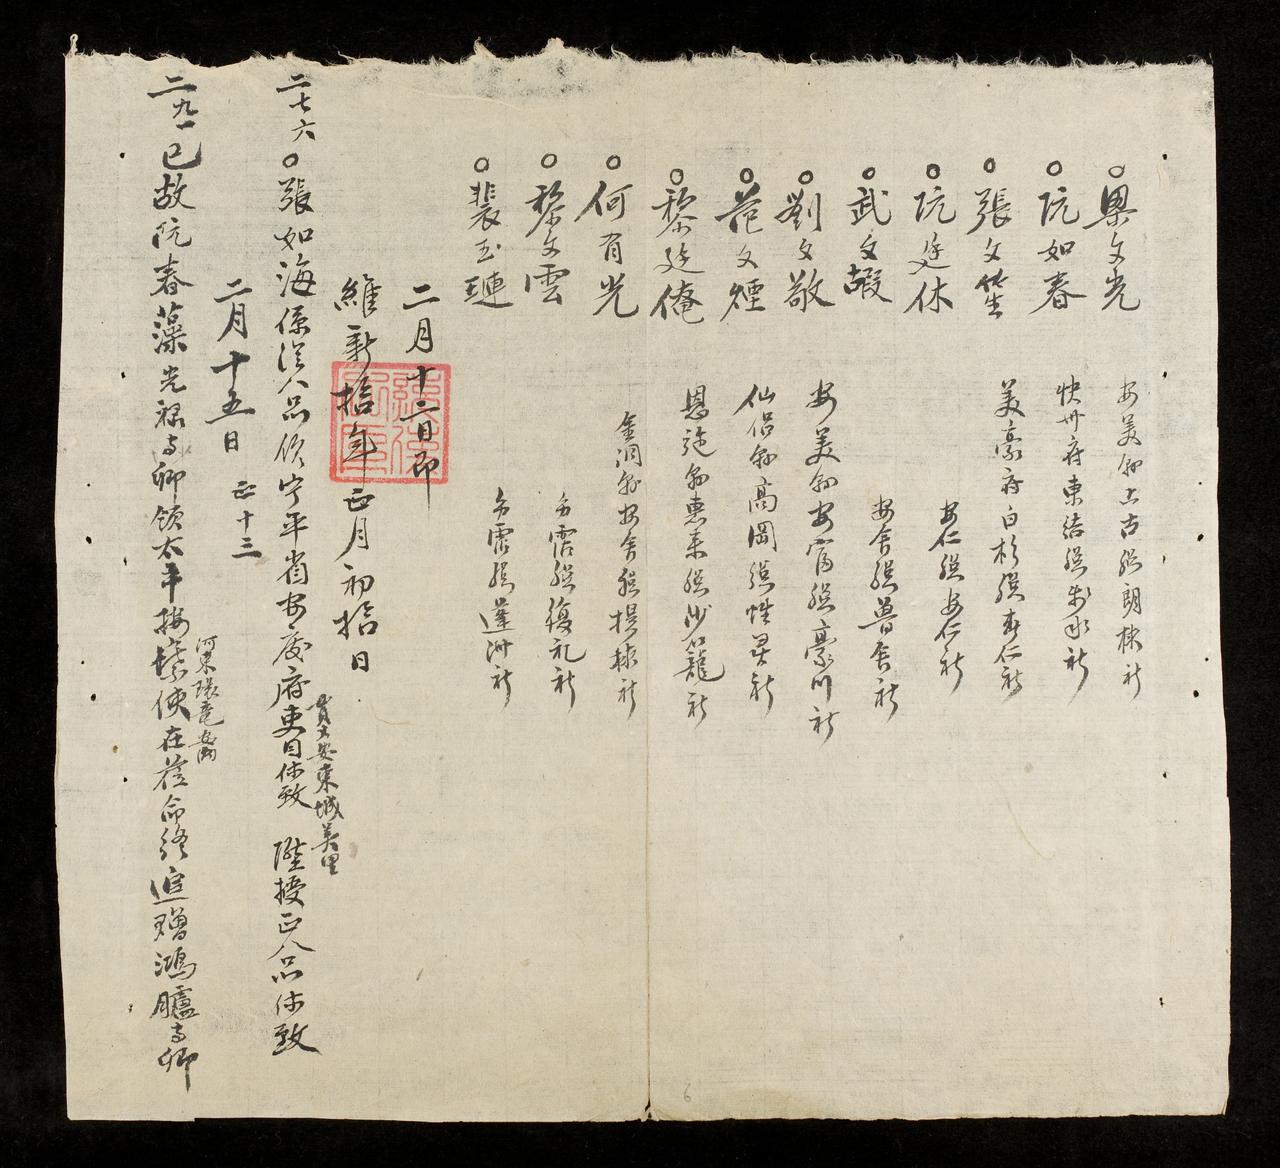 梁文光 安美縣上古總朗棣社
阮如春 快州府東結總 社
張文 美豪府白杉總春仁社
阮廷休 安仁總安仁社
武文嘏 安會總普會社
劉文敬 安美縣安富總豪川社
范文煙 仙侶縣高岡總性靈社
黎廷俺 恩施縣惠來總沙籠社
何有光 金洞縣安會總提棣社
黎文雲 方霑總復礼社
裴玉璉 方霑總蓬洲社
二月十二日印
維新拾年正月初拾日
貫 安東城美里
二七六 張如海係從八品領寧平省安慶府吏目休致 陞授正八品休致
二月十五日 正十三
河東環龍
二九一 已故阮春藻光祿寺卿領太平按察使在莅命終追贈鴻臚寺卿
6